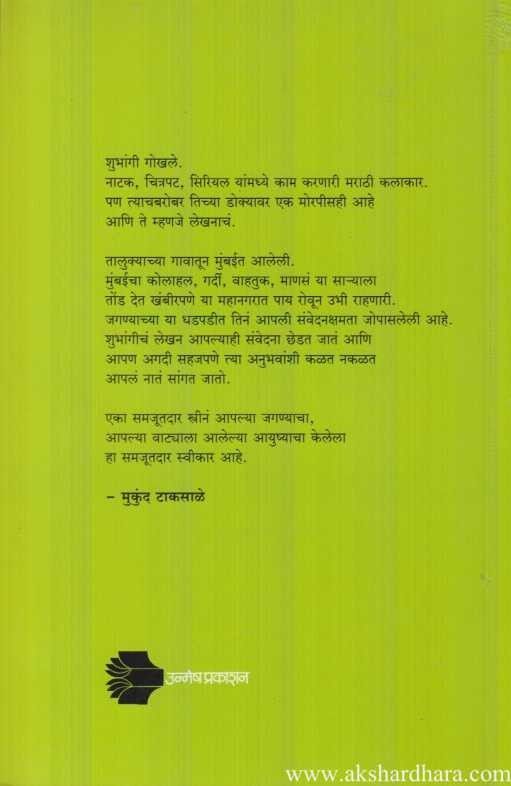 शुभांगी गोखले.
नाटक, चित्रपट, सिरियल यांमध्ये काम करणारी मराठी कलाकार.
पण त्याचबरोबर तिच्या डोक्यावर एक मोरपीसही आहे
आणि ते म्हणजे लेखनाचं.
तालुक्याच्या गावातून मुंबईत आलेली.
मुंबईचा कोलाहल, गर्दी, वाहतुक, माणसं या साऱ्याला
तोंड देत खंबीरपणे या महानगरात पाय रोवून उभी राहणारी.
जगण्याच्या या धडपडीत तिनं आपली संवेदनक्षमता जोपासलेली आहे.
शुभांगीचं लेखन आपल्याही संवेदना छेडत जातं आणि
आपण अगदी सहजपणे त्या अनुभवांशी कळत नकळत
आपलं नातं सांगत जातो.
एका समजूतदार स्त्रीनं आपल्या जगण्याचा,
आपल्या वाट्याला आलेल्या आयुष्याचा केलेला
हा समजूतदार स्वीकार आहे.
– मुकुंद टाकसाळे
उन्मेष प्रकाशन
www.akshardhara.com